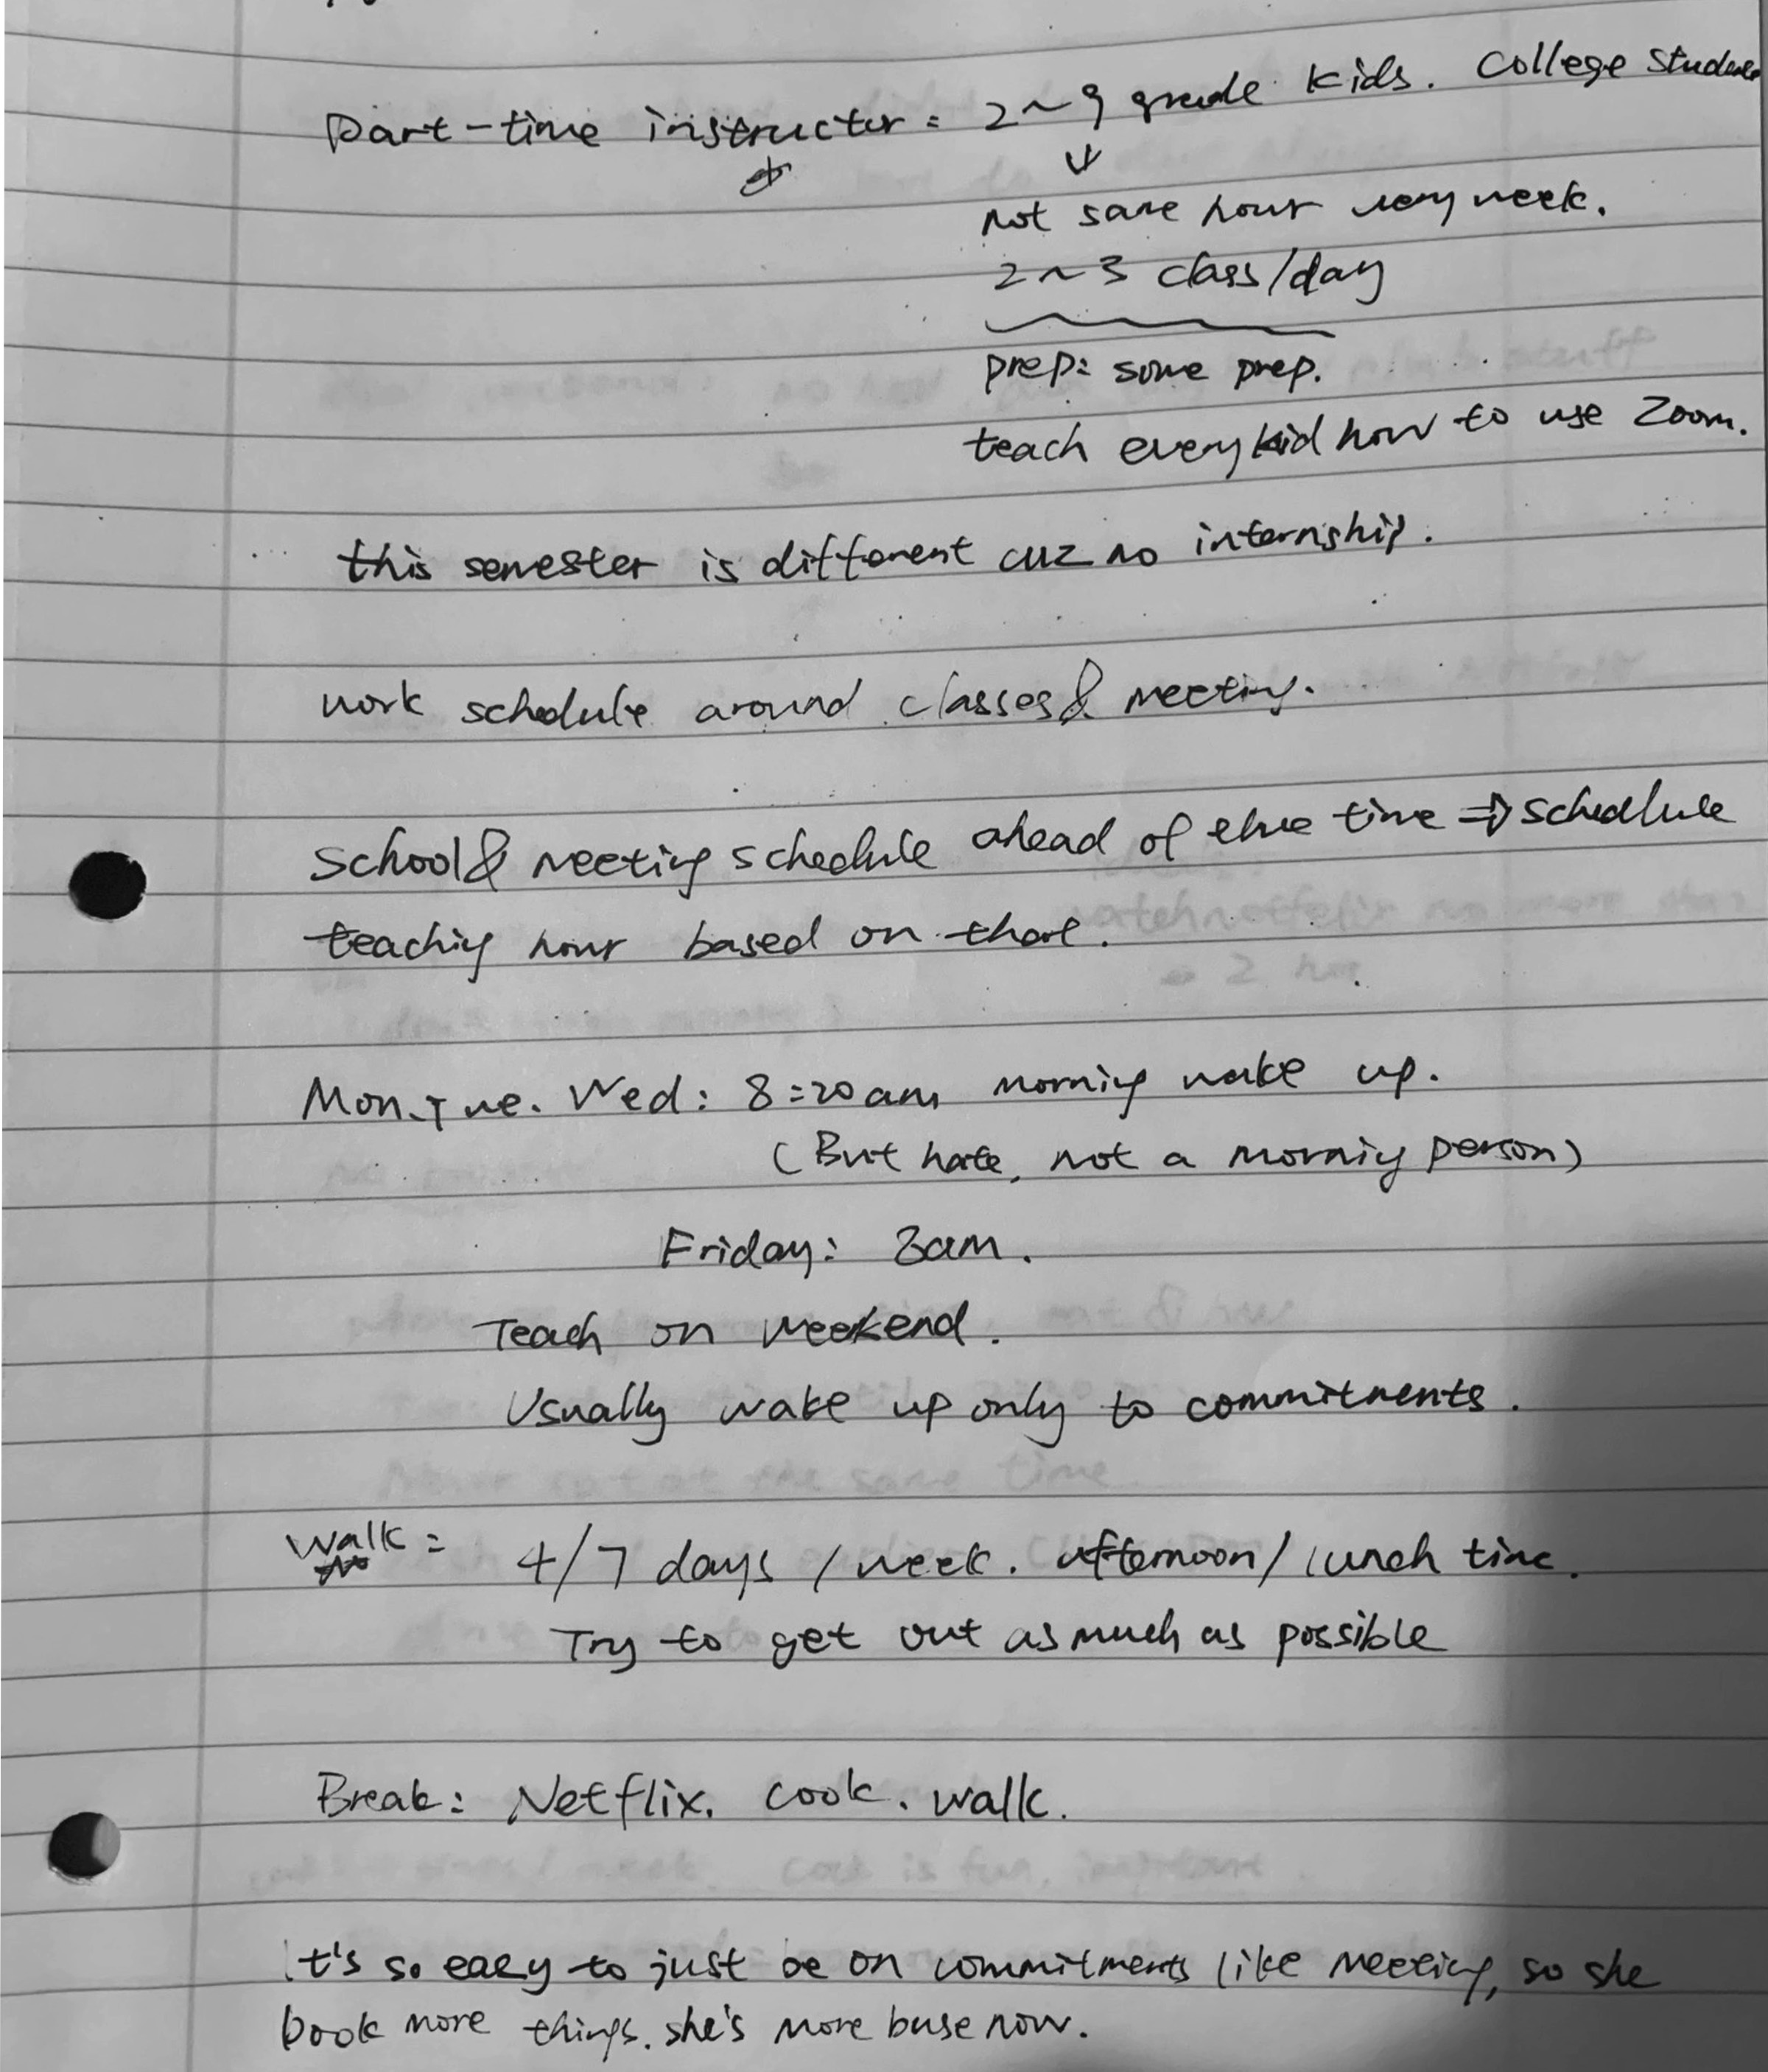 Part-time instructor: 2~9 grade kids. College Students
not same hour every week.
2~3 class/day
prep: some prep.
teach every kid how to use Zoom.
this semester is different cuz no internship.
work schedule around classes & meeting.
School & meeting schedule ahead of time => schedule
teaching hour based on that.
Mon. Tue. Wed: 8:20 am morning wake up.
(But hate, not a morning person)
Friday: 8am.
Teach on weekend.
Usually wake up only to commitments.
Walk: 4/7 days / week. afternoon / lunch time.
Try to get out as much as possible
Break: Netflix. cook. walk.
It's so easy to just be on commitments like meeting, so she
book more things. she's more buse now.